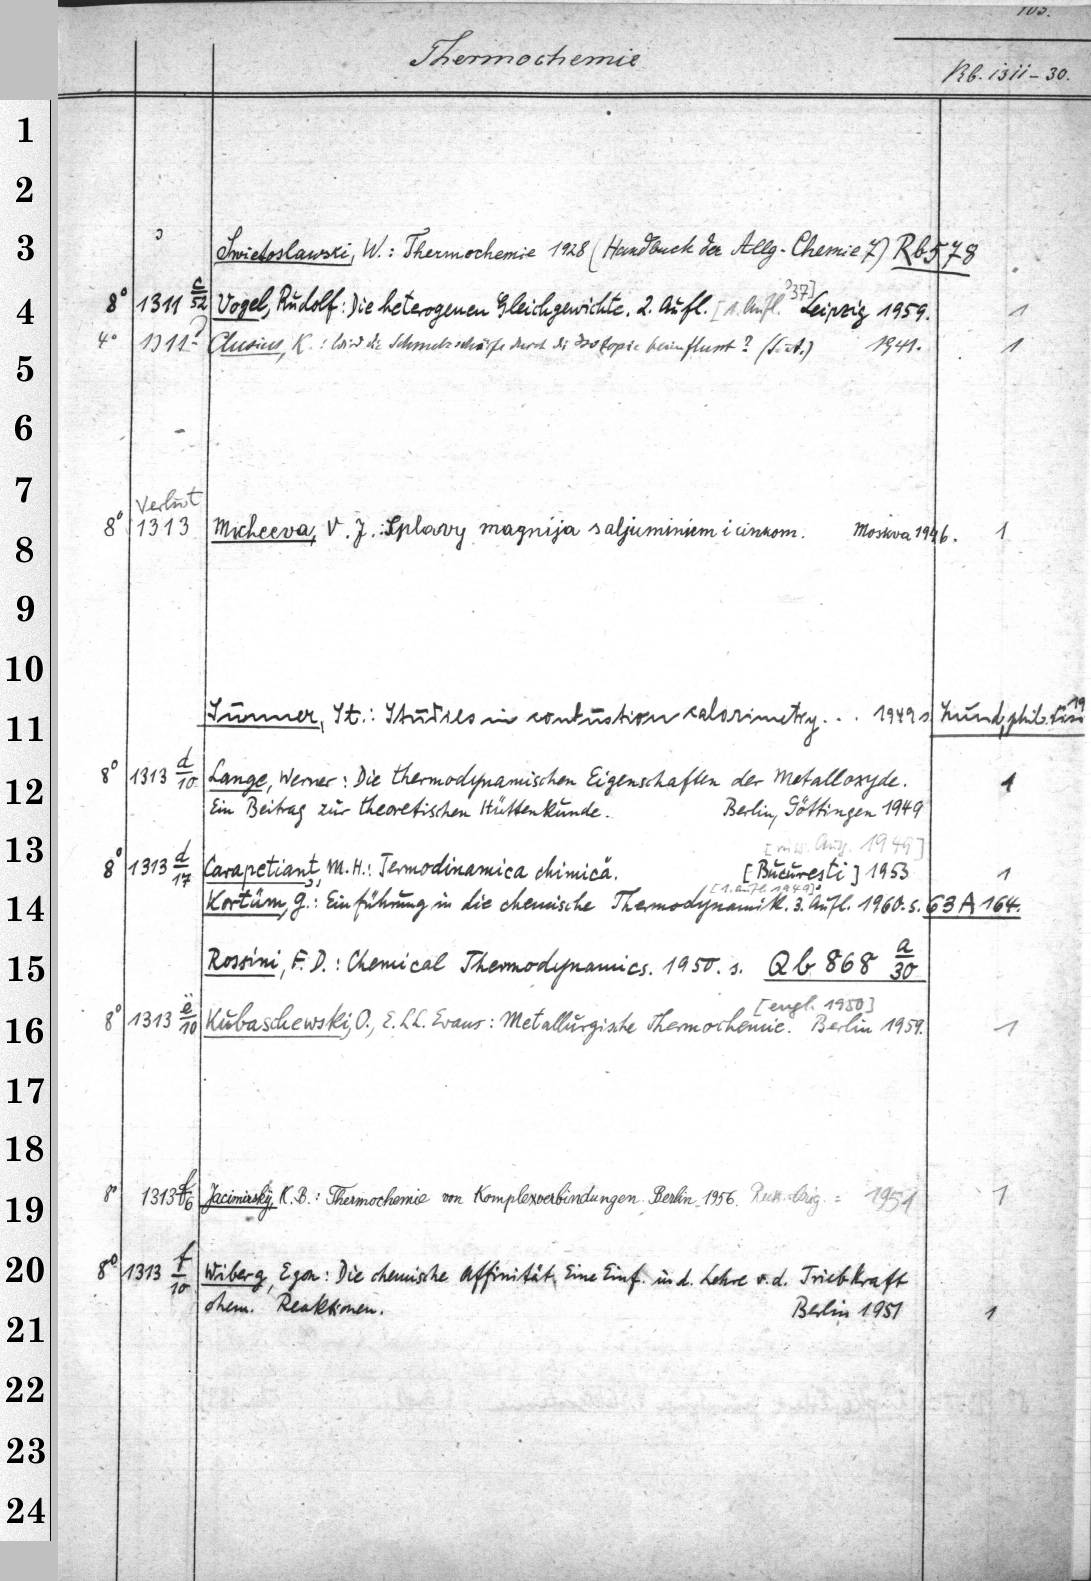 103.
Thermochemie
Rb. 1311-30.
1
2
3 Swietoslawski, W.: Thermochemie 1928 (Handbuch der Allg. Chemie 7) Rb 578
4 8° 1311 c/52 Vogel, Rudolf: Die heterogenen Gleichgewichte. 2. Aufl. [1. Aufl. 37] Leipzig 1959. 1
4° 1311 Clusius, K.: Wird die Schmelzschärfe durch die Isotopie beeinflusst? 1941. 1
5
6
7
Verlust
8° 1313 Micheeva, V. J.: Splavy magnija s aljuminiem i cinkom. Moskva 1946. 1
8
9
10
11 Sunner, St.: Studies in combustion calorimetry... 1949 s. Lund, phil. 19
12 8° 1313 d/10 Lange, Werner: Die thermodynamischen Eigenschaften der Metalloxyde. 1
Ein Beitrag zur theoretischen Hüttenkunde. Berlin, Göttingen 1949
13 [russ. Ausg. 1949]
8° 1313 d/17 Carapetiant, M. H.: Termodinamica chimică. [București] 1953 1
[1. Aufl. 1949]
14 Kortüm, G.: Einführung in die chemische Thermodynamik. 3. Aufl. 1960. s. 63 A 164.
15 Rossini, F. D.: Chemical Thermodynamics. 1950. s. Qb 868 a/30
[engl. 1950]
16 8° 1313 e/10 Kubaschewski, O., E. LL. Evans: Metallurgische Thermochemie. Berlin 1959. 1
17
18
19 8° 1313 f/6 Jacimirskij, K. B.: Thermochemie von Komplexverbindungen Berlin 1956. Russ. Orig. = 1951 1
20 8° 1313 f/10 Wiberg, Egon: Die chemische Affinität. Eine Einf. in d. Lehre v. d. Triebkraft
chem. Reaktionen. Berlin 1951 1
21
22
23
24